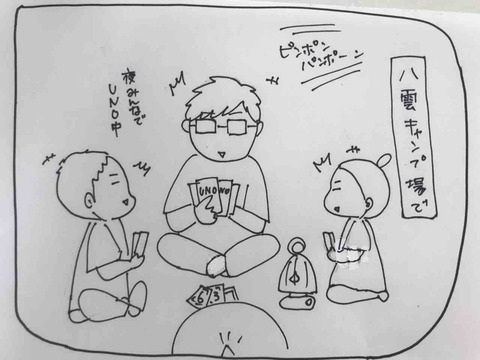 八雲キャンプ場で
ピンポン
パンポーン
夜みんなで
UNO中
UNO NO
6 7 3